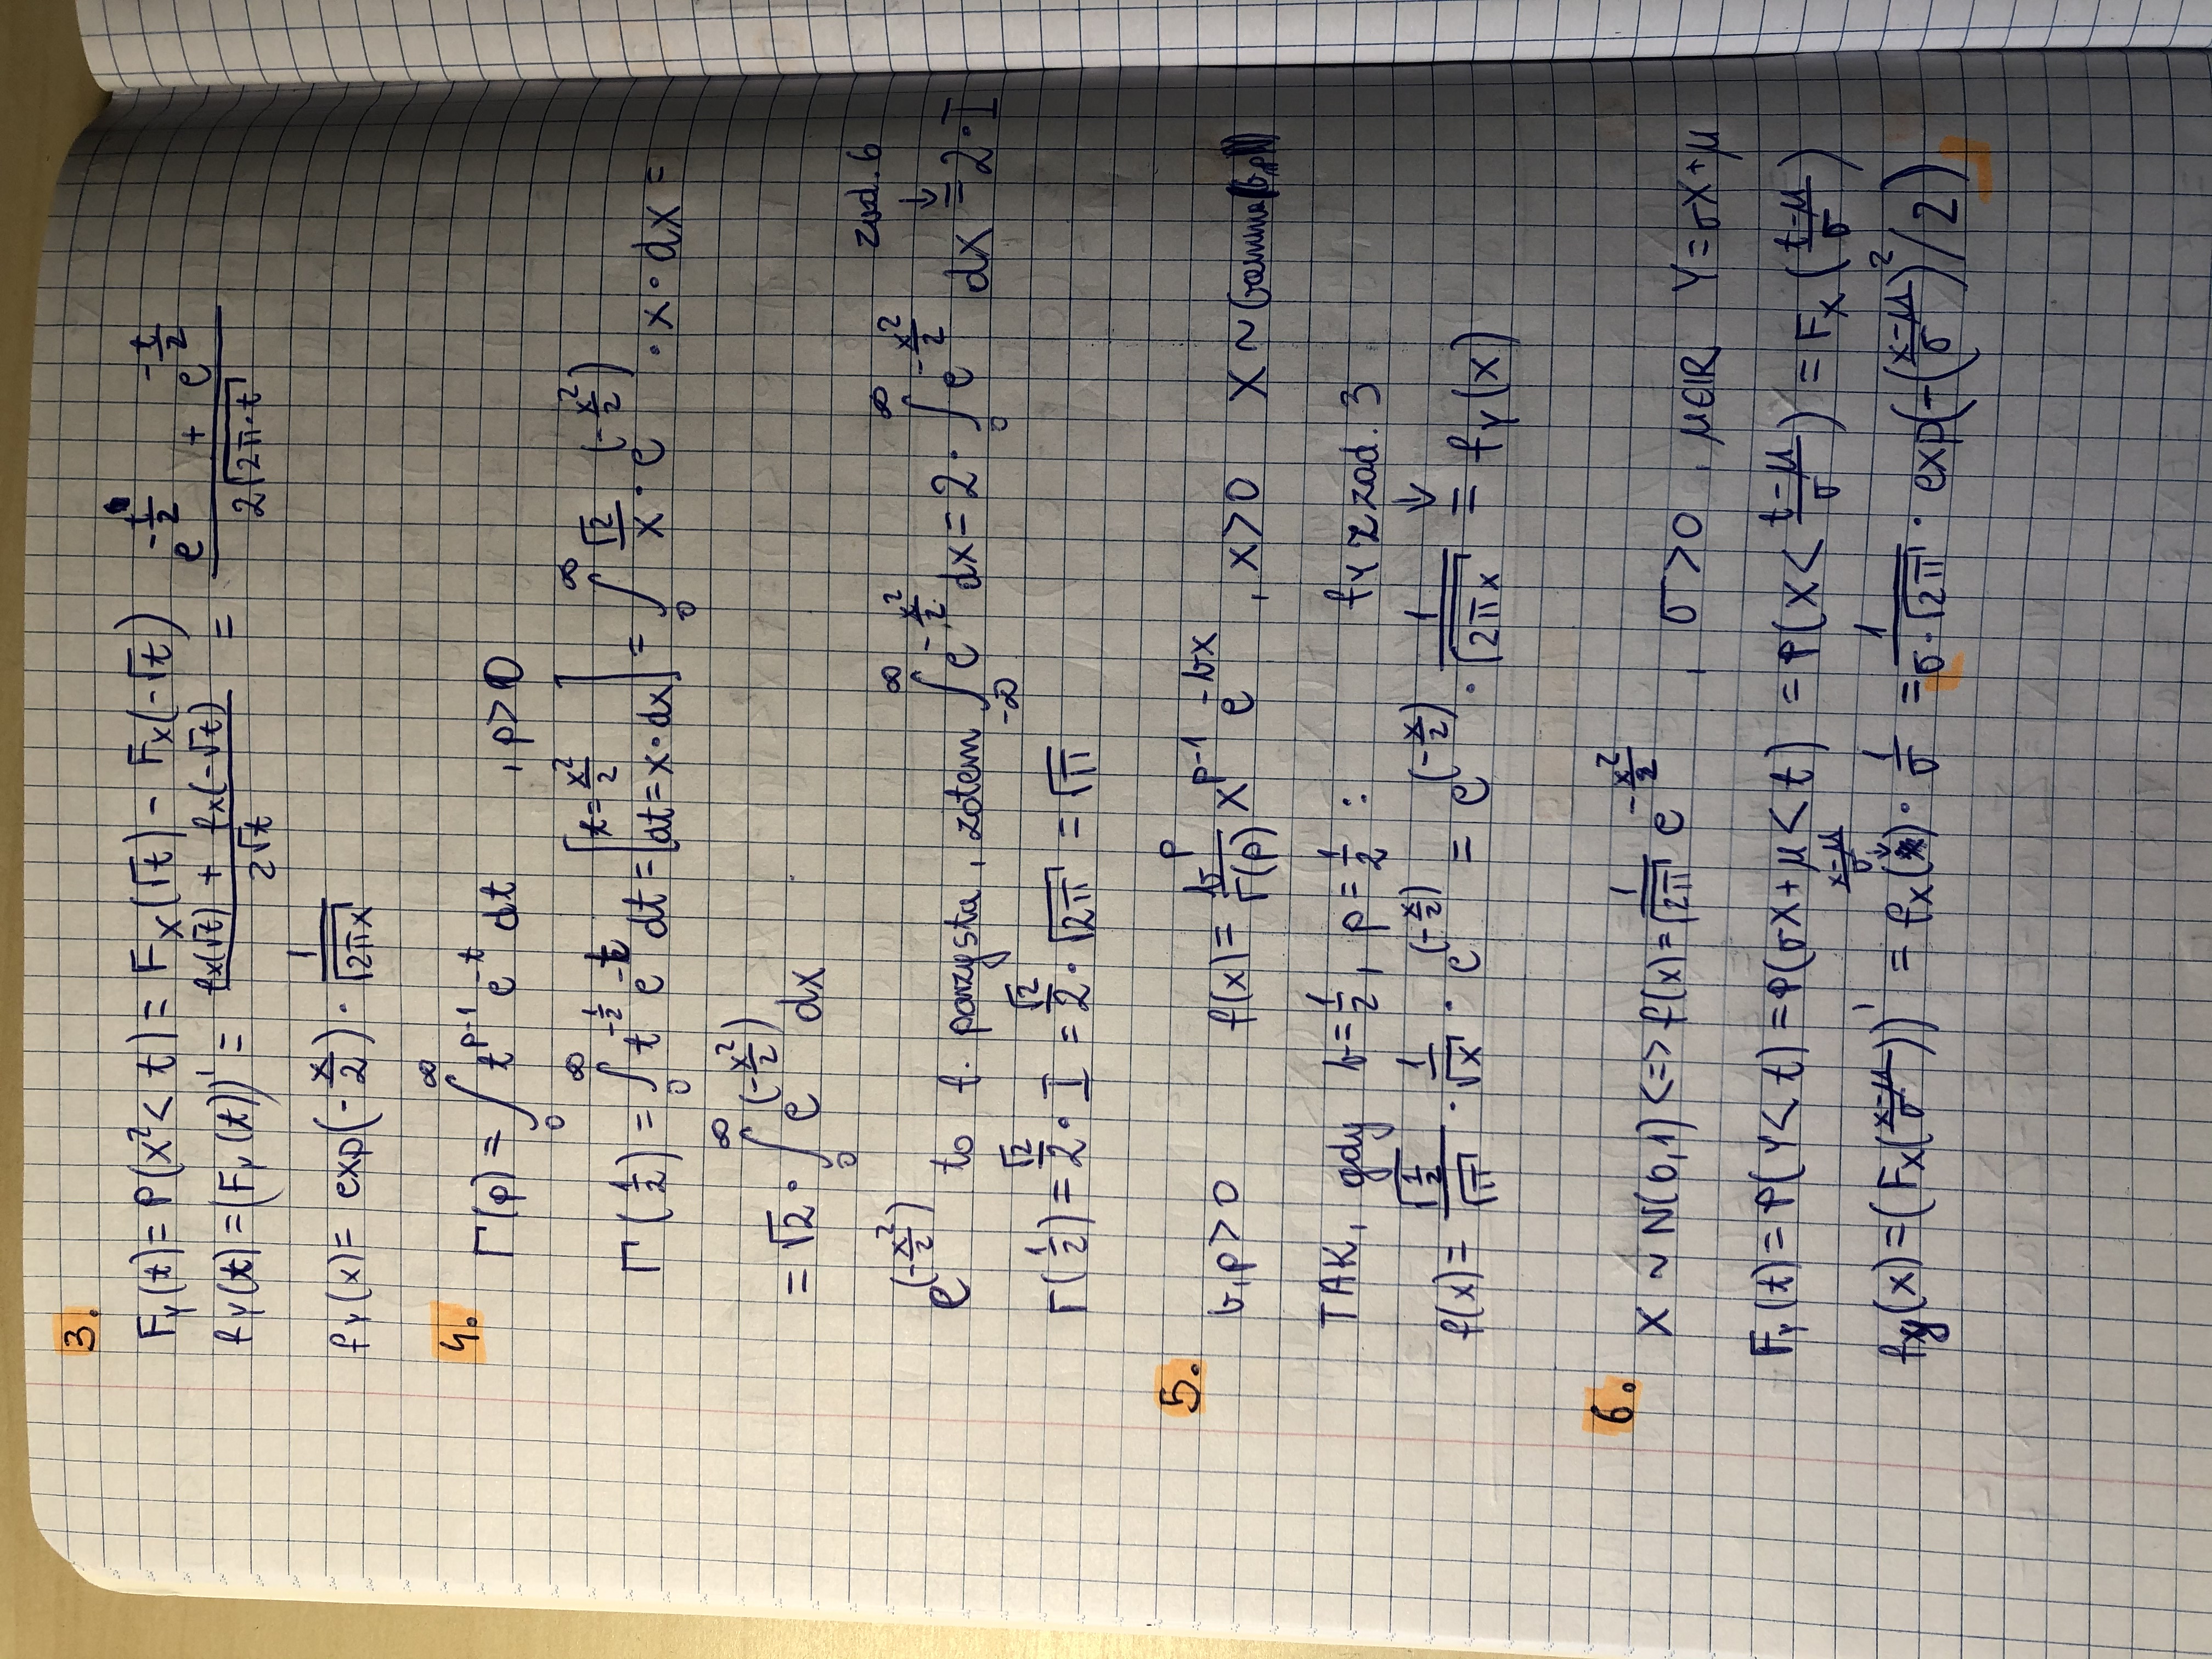 3.
F_Y(t) = P(X² < t) = F_X(√t) - F_X(-√t)
f_Y(t) = (F_Y(t))' = (f_X(√t) + f_X(-√t)) / (2√t) = (e^(-t/2) + e^(-t/2)) / (2√(2π·t))
f_Y(x) = exp(-x/2) · 1/√(2πx)
4.
Γ(p) = ∫₀^∞ t^(p-1) e^(-t) dt , p > 0
Γ(1/2) = ∫₀^∞ t^(-1/2) e^(-t) dt = [t = x²/2 dt = x·dx] = ∫₀^∞ √2/x · e^(-x²/2) · x · dx =
= √2 · ∫₀^∞ e^(-x²/2) dx
zad. 6
↓
e^(-x²/2) to f. parzysta, zatem ∫_{-∞}^∞ e^(-x²/2) dx = 2 · ∫₀^∞ e^(-x²/2) dx = 2·I
Γ(1/2) = √2/2 · I = √2/2 · √(2π) = √π
5.
b, p > 0 f(x) = b^p/Γ(p) x^(p-1) e^(-bx) , x > 0 X ~ Gamma(b,p)
TAK, gdy b = 1/2, p = 1/2 : f_Y z zad. 3
↓
f(x) = √(1/2)/√π · 1/√x · e^(-x/2) = e^(-x/2) · 1/√(2πx) = f_Y(x)
6.
X ~ N(0,1) <=> f(x) = 1/√(2π) e^(-x²/2) , σ > 0 , μ∈ℝ Y = σX+μ
F_Y(t) = P(Y < t) = P(σX + μ < t) = P(X < (t-μ)/σ) = F_X((t-μ)/σ)
(x-μ)/σ
↓
f_y(x) = (F_X((x-μ)/σ))' = f_X( ) · 1/σ = 1/(σ·√(2π)) · exp(-((x-μ)/σ)²/2)